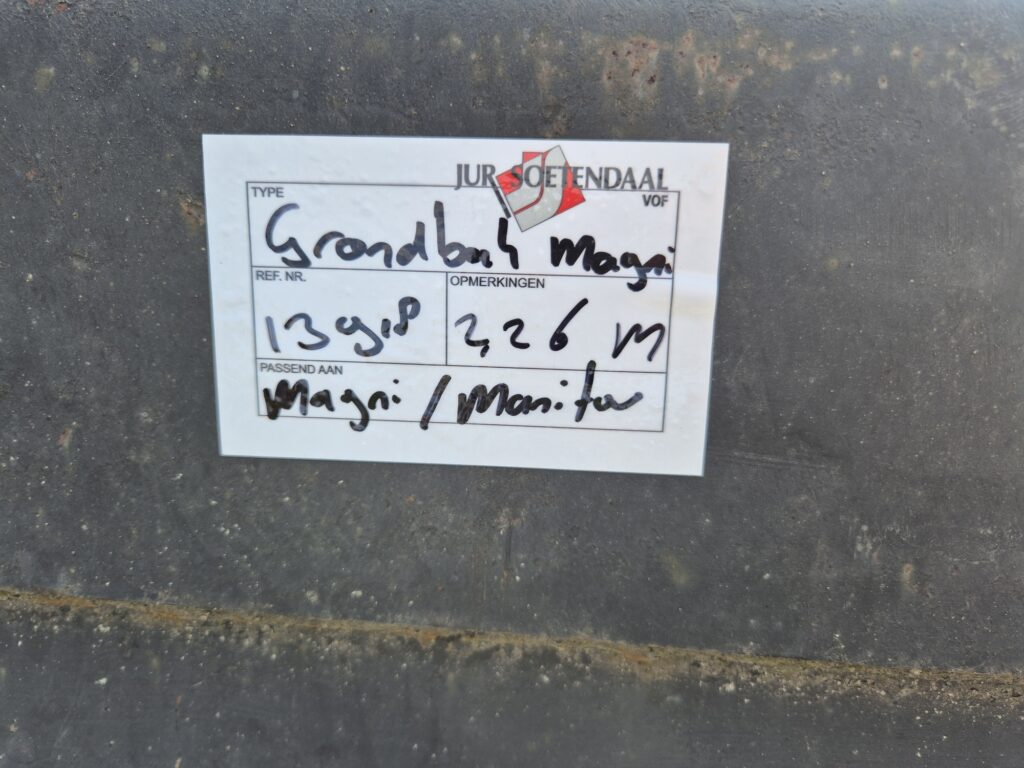 JUR SOETENDAAL
VOF
TYPE
Grondbak Magni
REF. NR.
OPMERKINGEN
13918
2,26 M
PASSEND AAN
Magni / Manitou